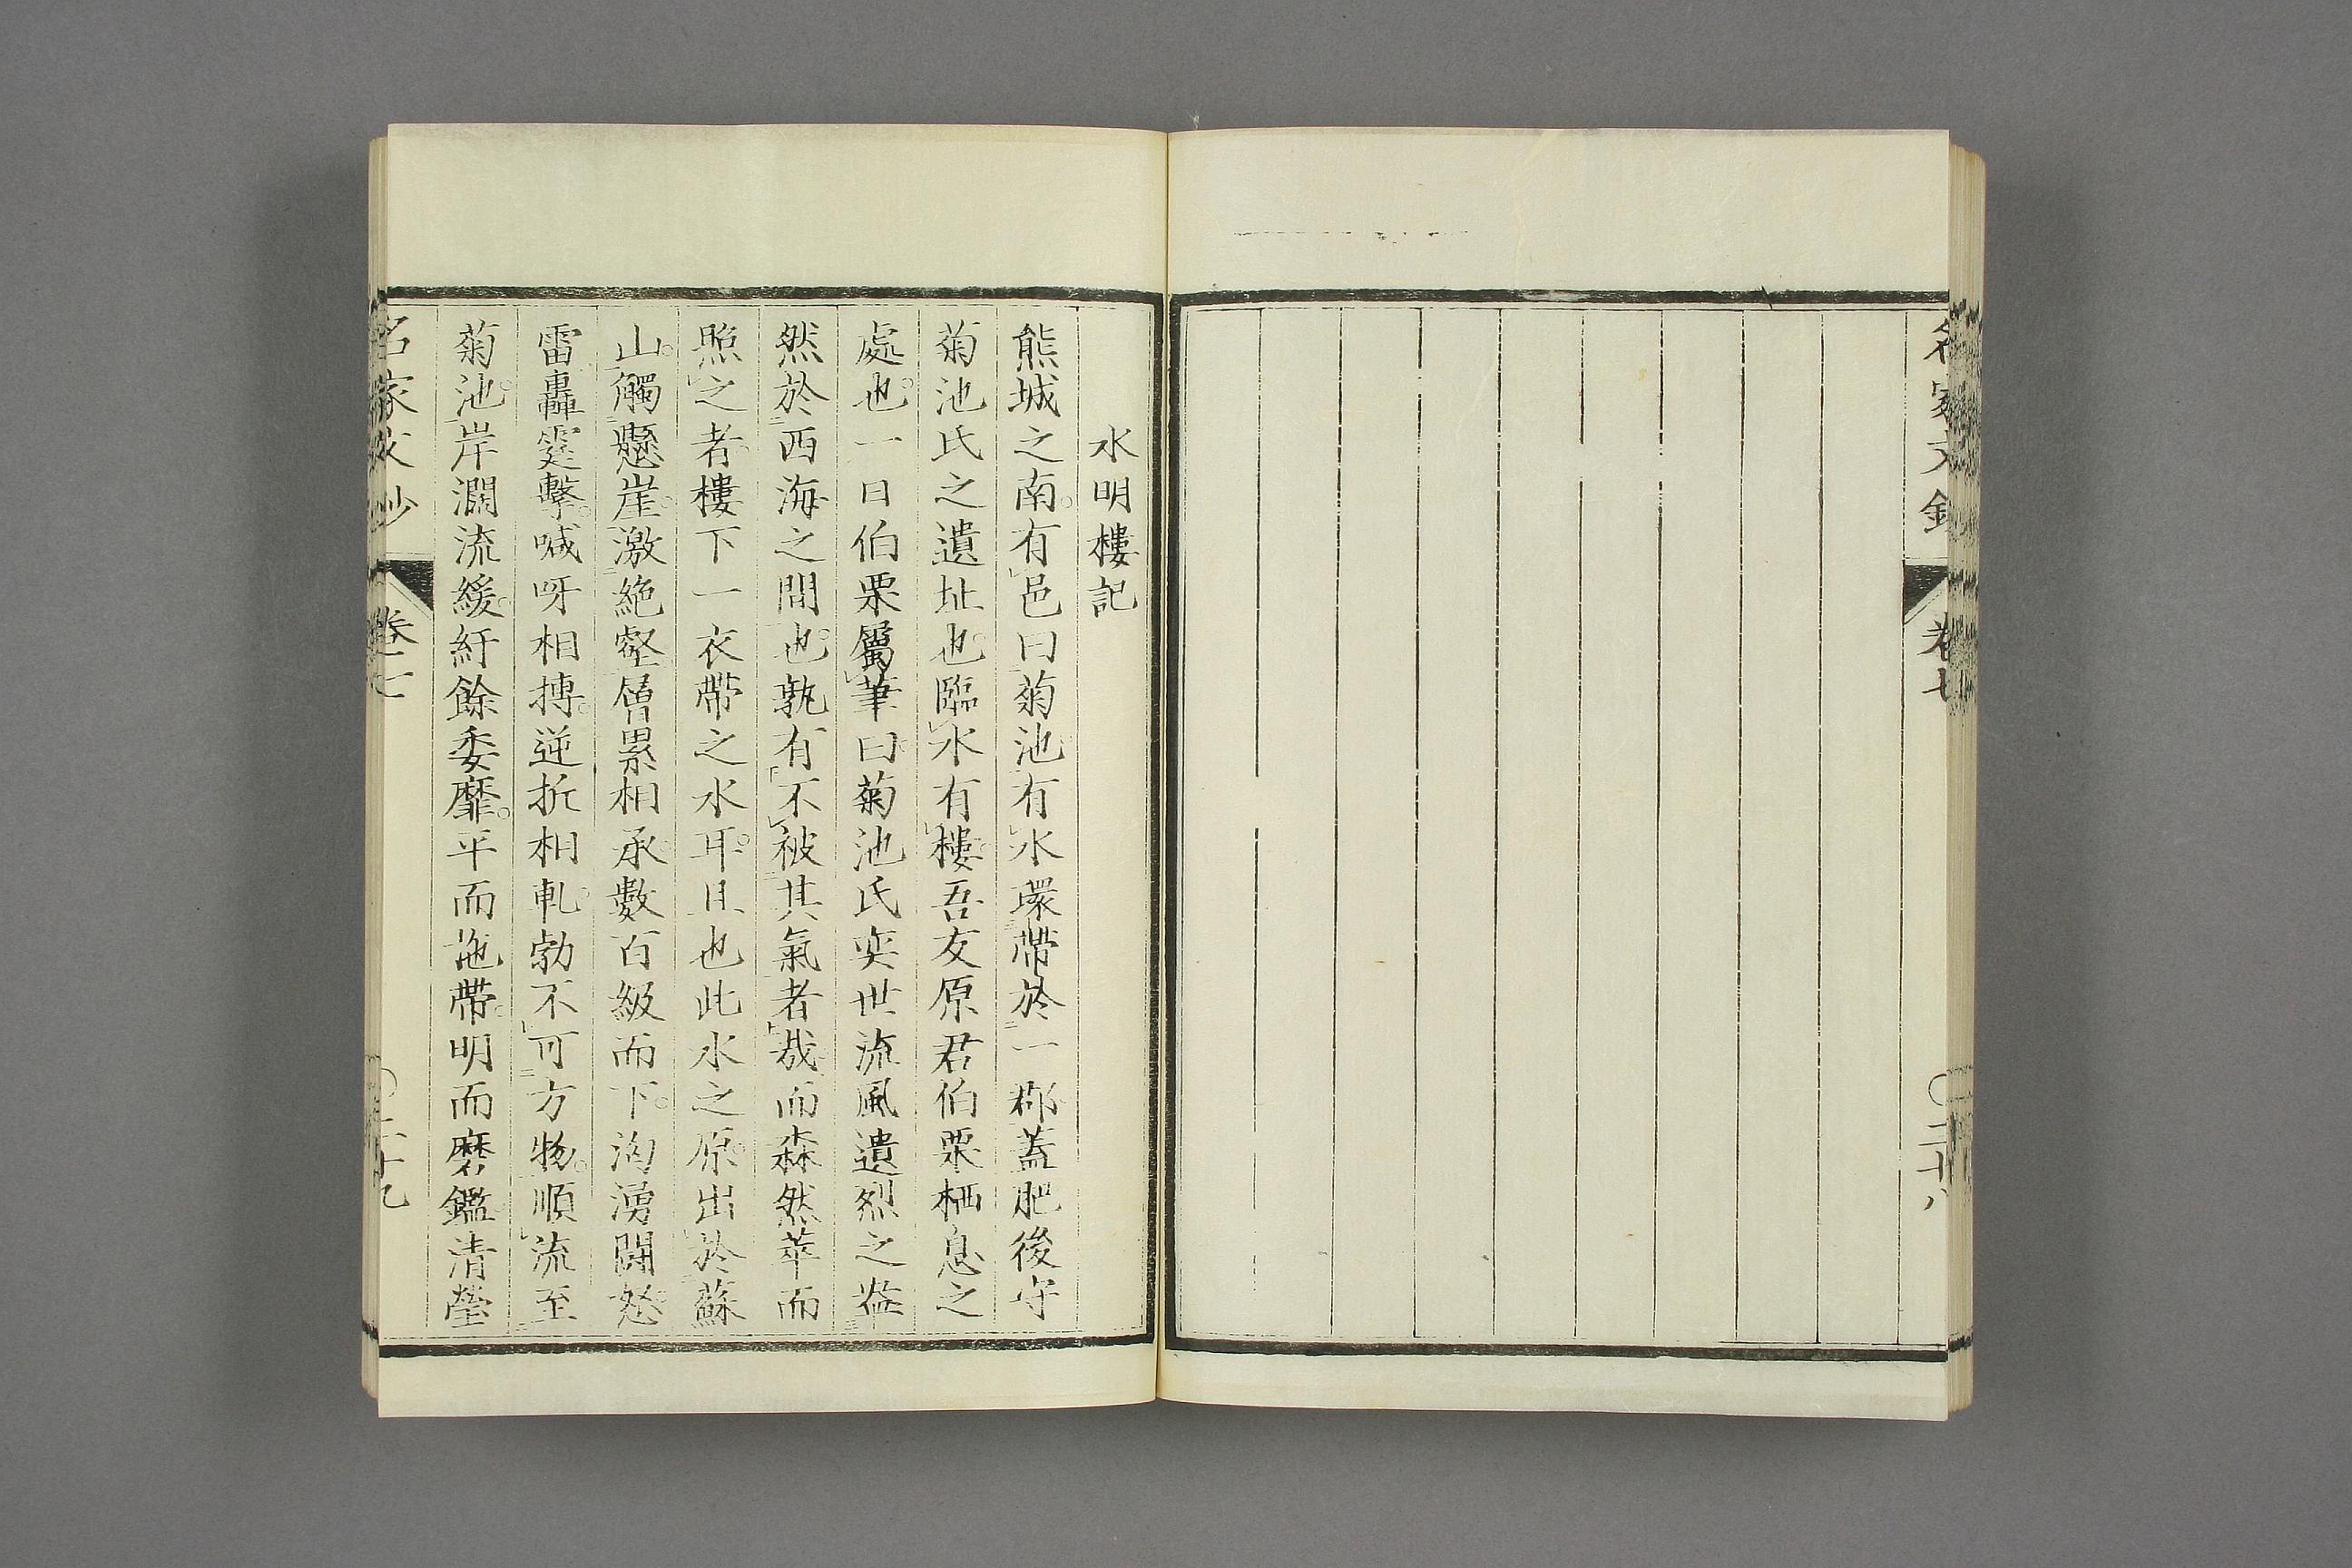 名家文鈔
卷七
〇二十八
水明樓記
熊城之南有邑曰菊池有水環帶於一郡蓋肥後守
菊池氏之遺址也臨水有樓吾友原君伯栗栖息之
處也一日伯栗屬筆曰菊池氏奕世流風遺烈之盎
然於西海之間也孰有不被其氣者哉而森然萃而
照之者樓下一衣帶之水耳且也此水之原出於蘇
山觸懸崖激絶壑層累相承數百級而下洶湧鬪怒
雷轟霆擊喊呀相搏逆折相軋勃不可方物順流至
菊池岸濶流緩紆餘委靡平而拖帶明而磨鑑清瑩
名家文鈔
卷七
〇二十九